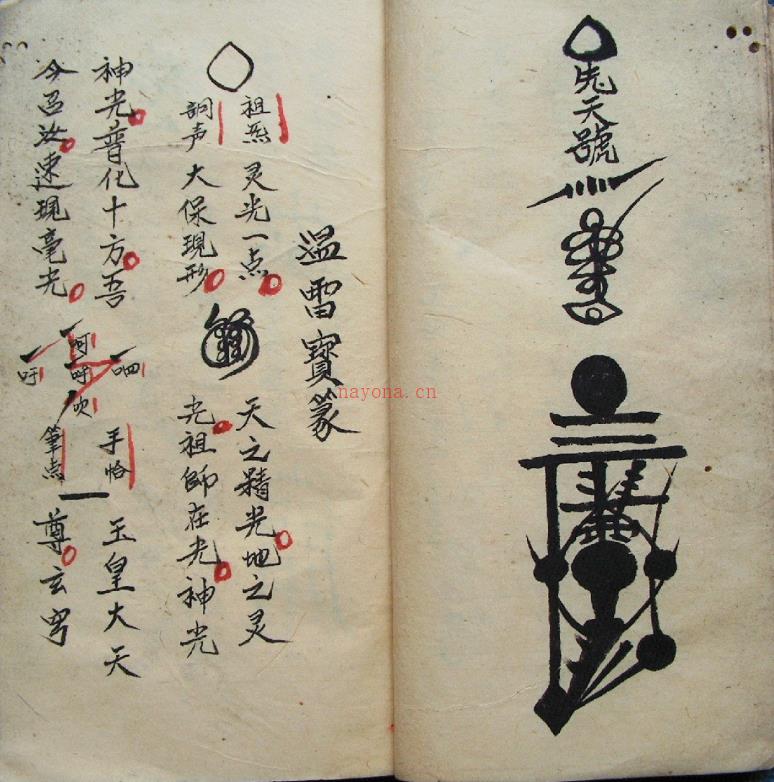 先天號
溫雷寶篆
祖炁
灵光一点
天之精光地之灵
大保現形
光祖師在光神光
神光普化十方吾
手
玉皇大天
今召汝速現毫光
呬
呵
呼
吹
吁
筆点
尊玄穹
nayona.cn